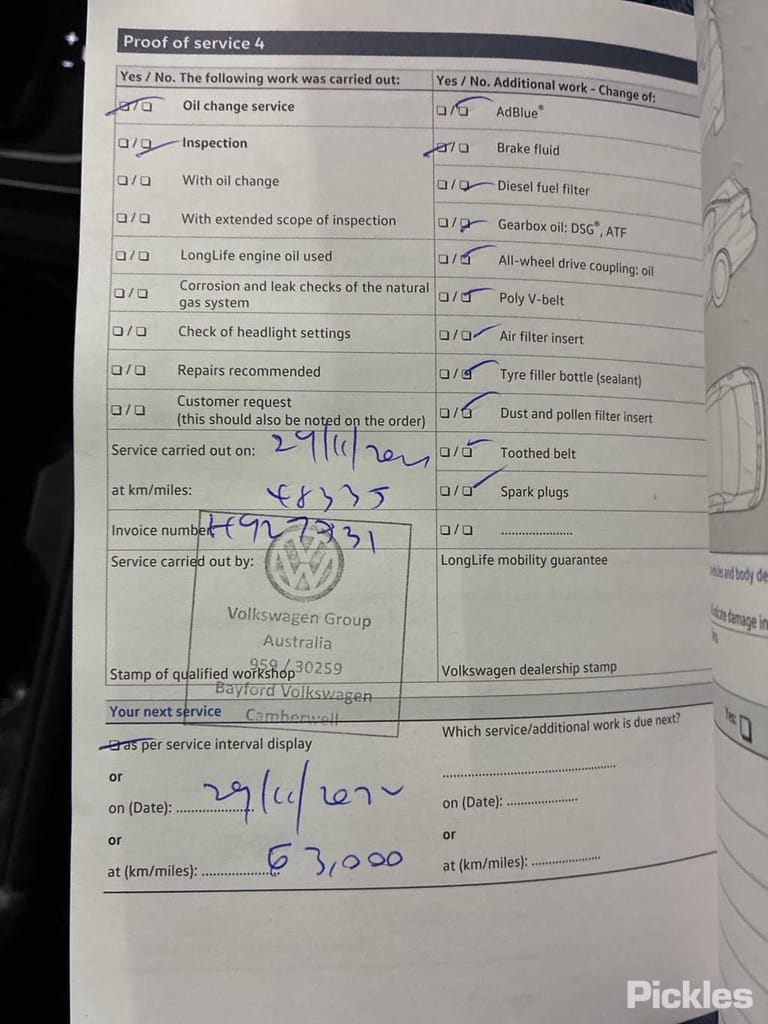 Proof of service 4
Yes / No. The following work was carried out:
☐ / ☐ Oil change service
☐ / ☐ Inspection
☐ / ☐ With oil change
☐ / ☐ With extended scope of inspection
☐ / ☐ LongLife engine oil used
☐ / ☐ Corrosion and leak checks of the natural
gas system
☐ / ☐ Check of headlight settings
☐ / ☐ Repairs recommended
☐ / ☐ Customer request
(this should also be noted on the order)
Service carried out on: 29/11/
at km/miles: 48335
Invoice number
Service carried out by:
Volkswagen Group
Australia
959 / 30259
Bayford Volkswagen
Camberwell
Stamp of qualified workshop
Yes / No. Additional work - Change of:
☐ / ☐ AdBlue®
☐ / ☐ Brake fluid
☐ / ☐ Diesel fuel filter
☐ / ☐ Gearbox oil: DSG®, ATF
☐ / ☐ All-wheel drive coupling: oil
☐ / ☐ Poly V-belt
☐ / ☐ Air filter insert
☐ / ☐ Tyre filler bottle (sealant)
☐ / ☐ Dust and pollen filter insert
☐ / ☐ Toothed belt
☐ / ☐ Spark plugs
☐ / ☐ ......................
LongLife mobility guarantee
Volkswagen dealership stamp
Your next service
☐ as per service interval display
or
on (Date): 29/11/
or
at (km/miles): 63,000
Which service/additional work is due next?
on (Date): ....................
or
at (km/miles): ....................
and body de
damage in
Yes: ☐
Pickles